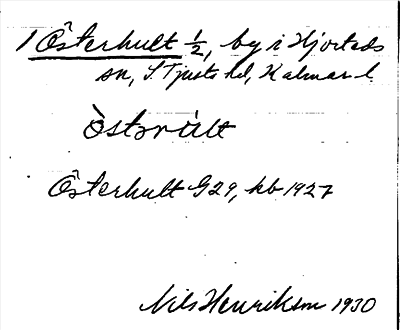 1 Österhult ½, by i Hjorteds
sn, S Tjusts hd, Kalmar l
Österhult G29, kb 1927
Nils Henrikson 1930